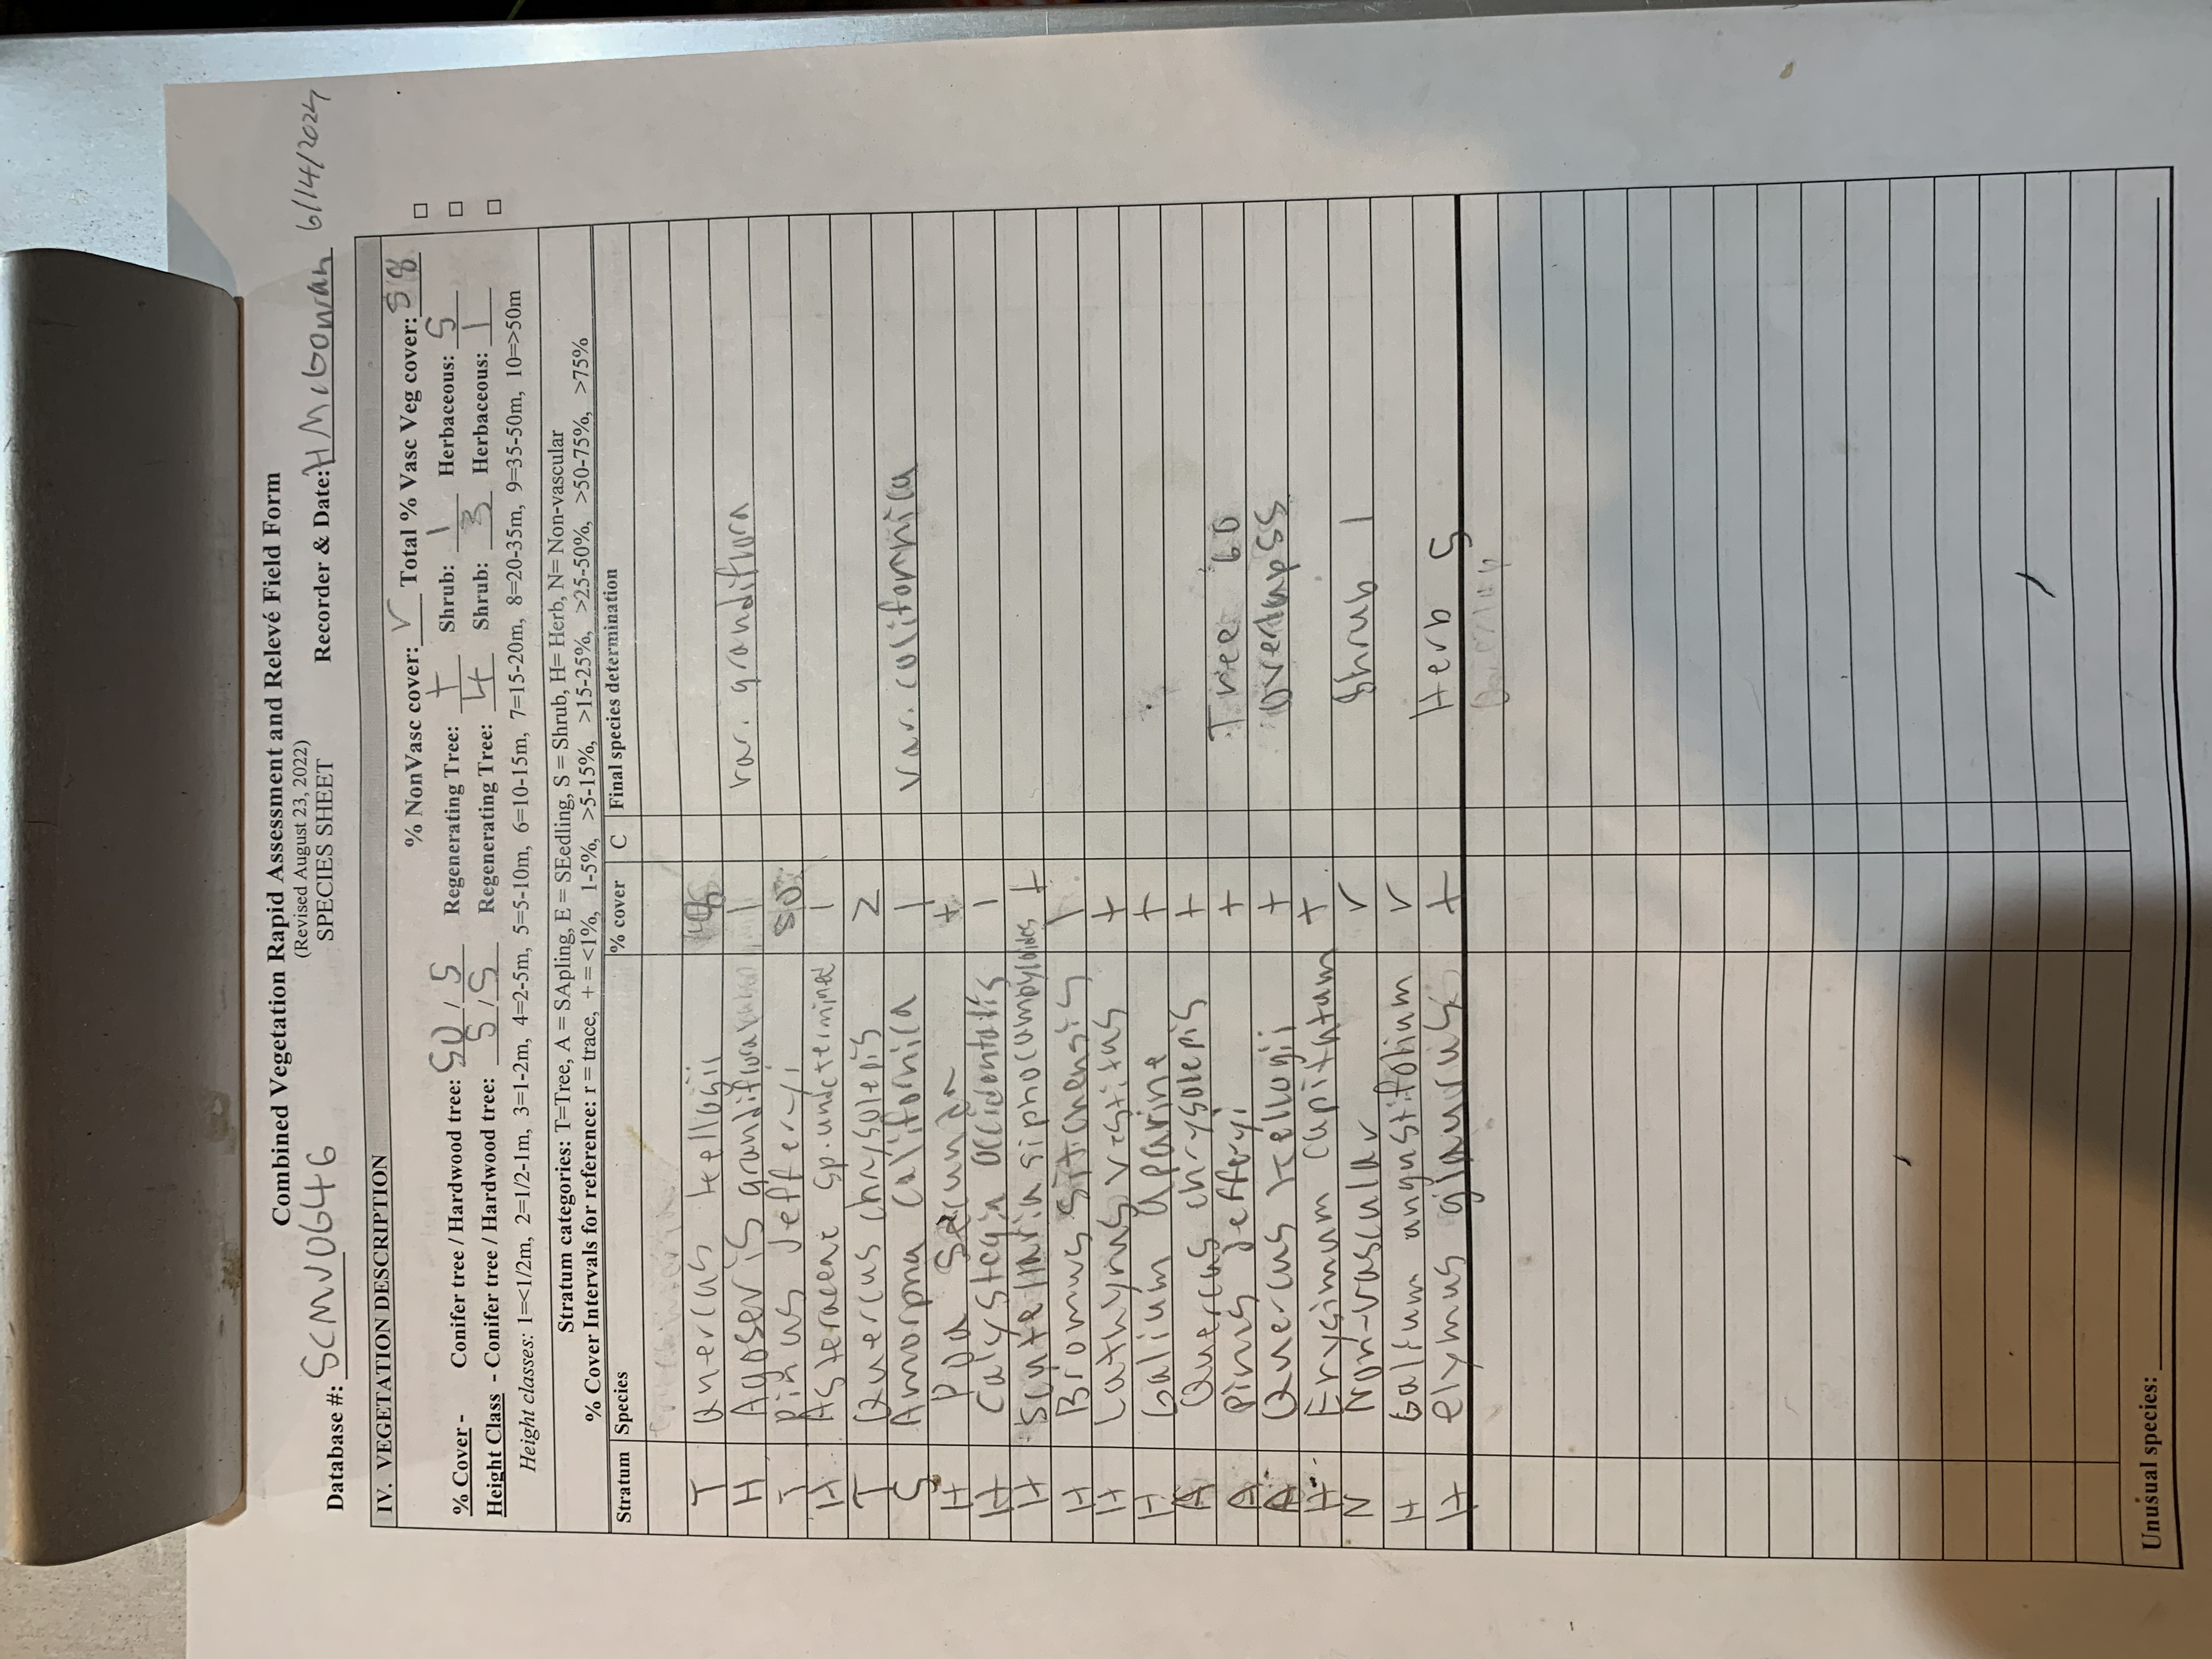 Combined Vegetation Rapid Assessment and Relevé Field Form
(Revised August 23, 2022)
SPECIES SHEET
Database #: SCMV0646 Recorder & Date: HMcGowan 6/14/2024
IV. VEGETATION DESCRIPTION
% NonVasc cover: r Total % Vasc Veg cover: 58
% Cover - Conifer tree / Hardwood tree: 50 / 5 Regenerating Tree: + Shrub: 1 Herbaceous: 5
Height Class - Conifer tree / Hardwood tree: 5 / 5 Regenerating Tree: 4 Shrub: 3 Herbaceous: 1
Height classes: 1=<1/2m, 2=1/2-1m, 3=1-2m, 4=2-5m, 5=5-10m, 6=10-15m, 7=15-20m, 8=20-35m, 9=35-50m, 10=>50m
Stratum categories: T=Tree, A = SApling, E = SEedling, S = Shrub, H= Herb, N= Non-vascular
% Cover Intervals for reference: r = trace, + = <1%, 1-5%, >5-15%, >15-25%, >25-50%, >50-75%, >75%
Stratum Species % cover C Final species determination
T Quercus kelloggii
H Agoseris grandiflora 1 var. grandiflora
T Pinus jefferyi 50
H Asteraceae sp. undetermined 1
T Quercus chrysolepis 2
S Amorpha californica 1 var. californica
H Poa secunda +
H Calystegia occidentalis 1
H Scutellaria siphocampyloides +
H Bromus sitchensis 1
H Lathyrus vestitus +
H Galium aparine +
A Quercus chrysolepis +
A Pinus jefferyi + Tree 60
A Quercus kelloggii + Overlap 55
H Erysimum capitatum +
N Non-vascular r Shrub 1
H Galium angustifolium r
H Elymus glaucus + Herb 5
Unusual species: